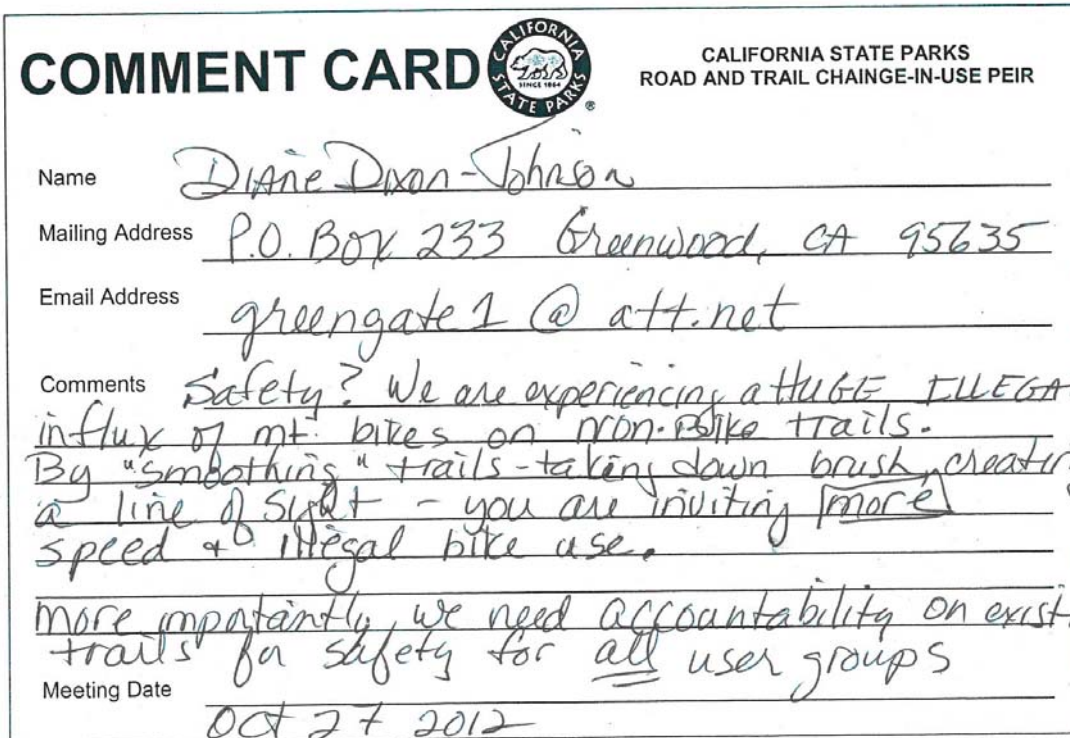 COMMENT CARD
CALIFORNIA
STATE PARKS
SINCE 1864
®
CALIFORNIA STATE PARKS
ROAD AND TRAIL CHAINGE-IN-USE PEIR
Name Diane Dixon-Johnson
Mailing Address P.O. Box 233 Greenwood, CA 95635
Email Address greengate1@att.net
Comments Safety? We are experiencing a HUGE ILLEGA
influx of mt. bikes on non-Bike trails.
By "smoothing" trails - taking down brush, creatin
a line of sight - you are inviting more
speed & illegal bike use.
more importantly, we need accountability on exist
trails for safety for all user groups
Meeting Date
Oct 27 2012